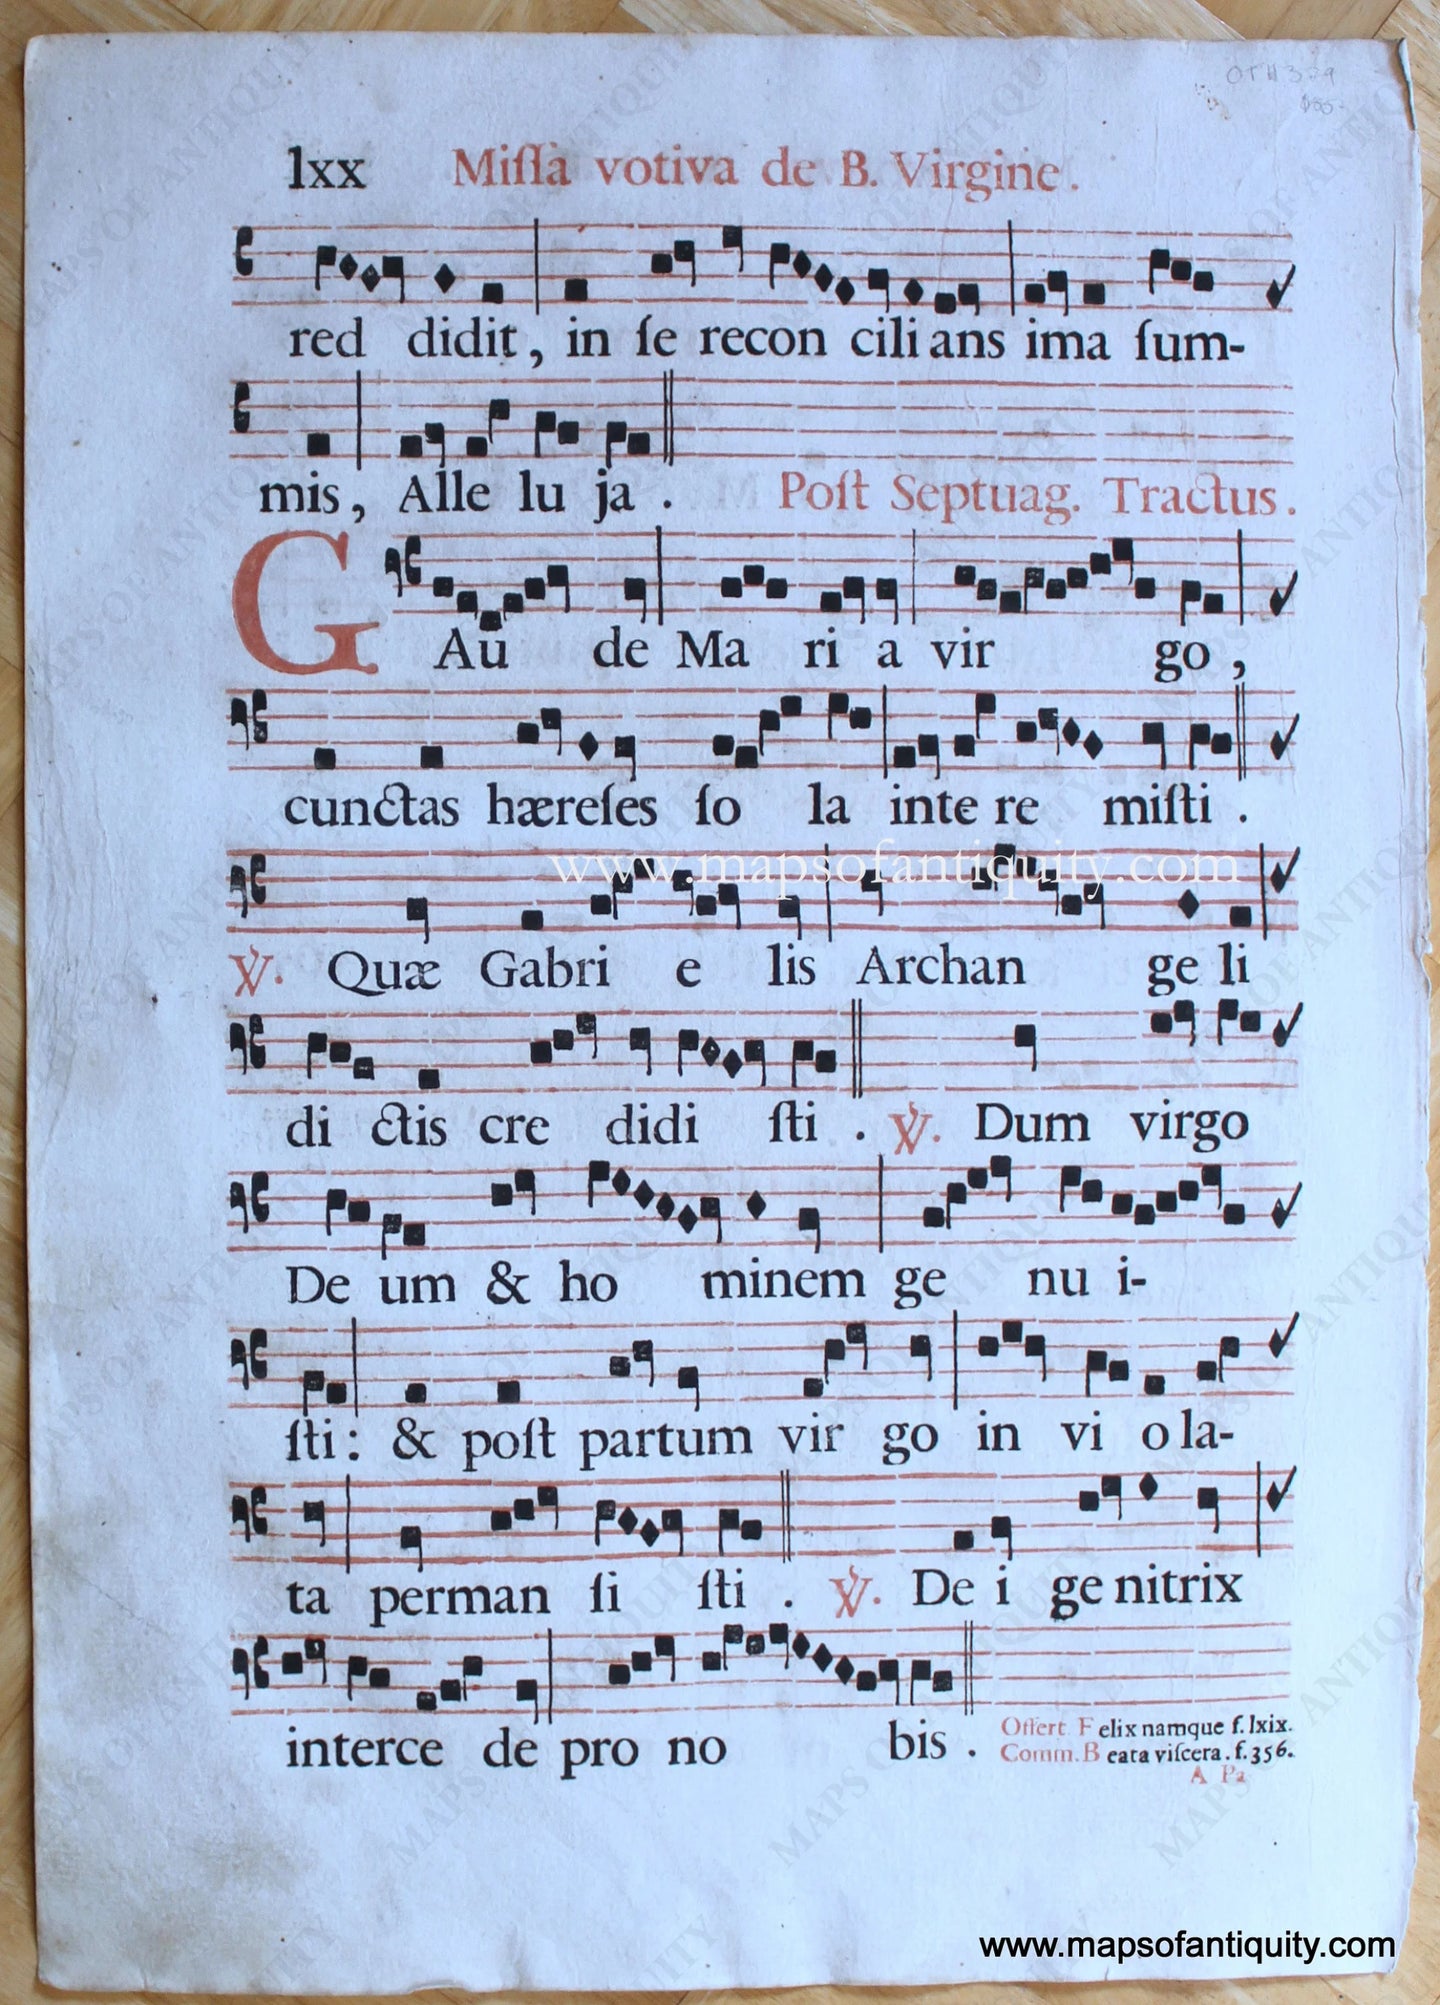 OTH 379
lxx Miſſa votiva de B. Virgine.
red didit, in ſe recon cili ans ima ſum-
mis, Alle lu ja. Poſt Septuag. Tractus.
GAu de Ma ri a vir go,
cunctas hæreſes ſo la inte re miſti.
www.mapsofantiquity.com
℣. Quæ Gabri e lis Archan ge li
di ctis cre didi ſti. ℣. Dum virgo
De um & ho minem ge nu i-
ſti: & poſt partum vir go in vi o la-
ta perman ſi ſti. ℣. De i ge nitrix
interce de pro no bis. Offert. Felix namque f. lxix.
Comm. Beata viſcera. f. 356.
A Pa
www.mapsofantiquity.com